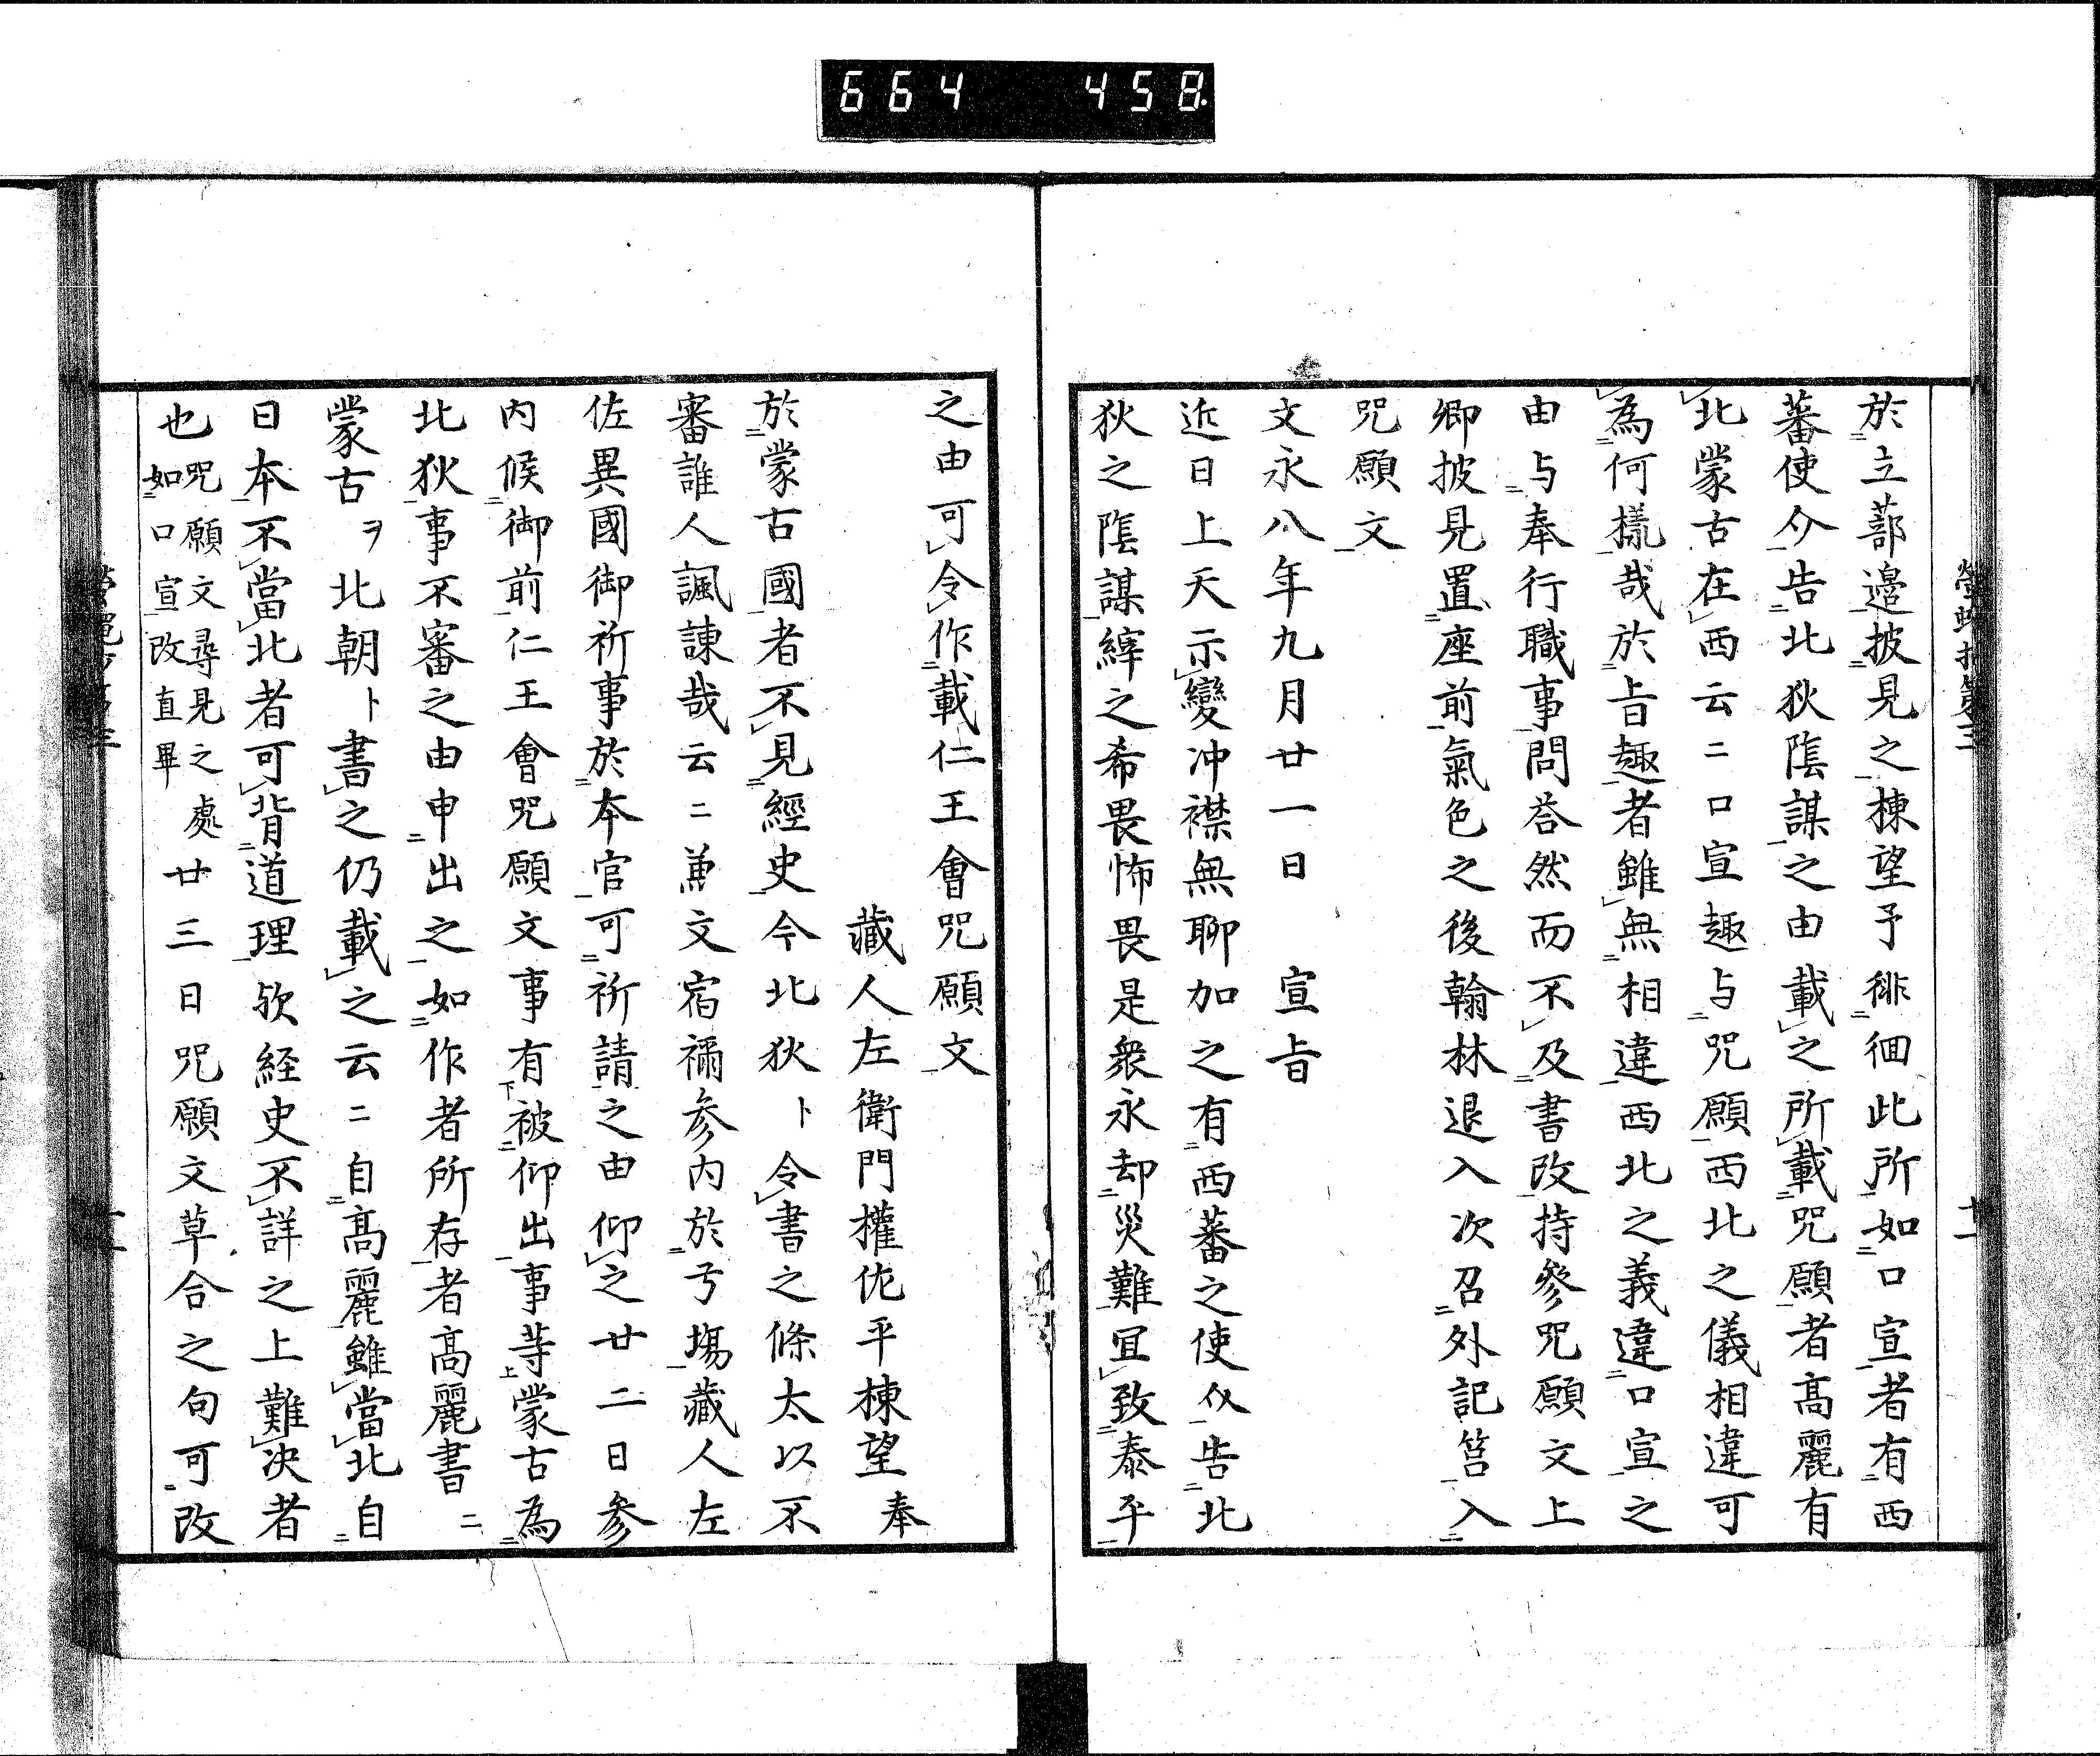 664 458
於立蔀邊披見之棟望予徘徊此所如口宣者有西
蕃使介告北狄陰謀之由載之所載咒願者高麗有
北蒙古在西云〻口宣趣与咒願西北之儀相違可
為何樣哉於旨趣者雖無相違西北之義違口宣之
由与奉行職事問答然而不及書改持參咒願文上
卿披見置座前氣色之後翰林退入次召外記筥入
咒願文
文永八年九月廿一日 宣旨
近日上天示變冲襟無聊加之有西蕃之使介告北
狄之陰謀縡之希畏怖畏是衆永却災難宜致泰平
之由可令作載仁王會咒願文
藏人左衛門權佐平棟望奉
於蒙古國者不見經史今北狄ト令書之條太以不
審誰人諷諫哉云〻兼文宿禰參内於弓場藏人左
佐異國御祈事於本官可祈請之由仰之廿二日參
内候御前仁王會咒願文事有被仰出事等蒙古為
北狄事不審之由申出之如作者所存者高麗書
蒙古ヲ北朝ト書之仍載之云〻自高麗雖當北自
日本不當北者可背道理欤経史不詳之上難決者
也咒願文尋見之處如口宣改直畢廿三日咒願文草合之句可改